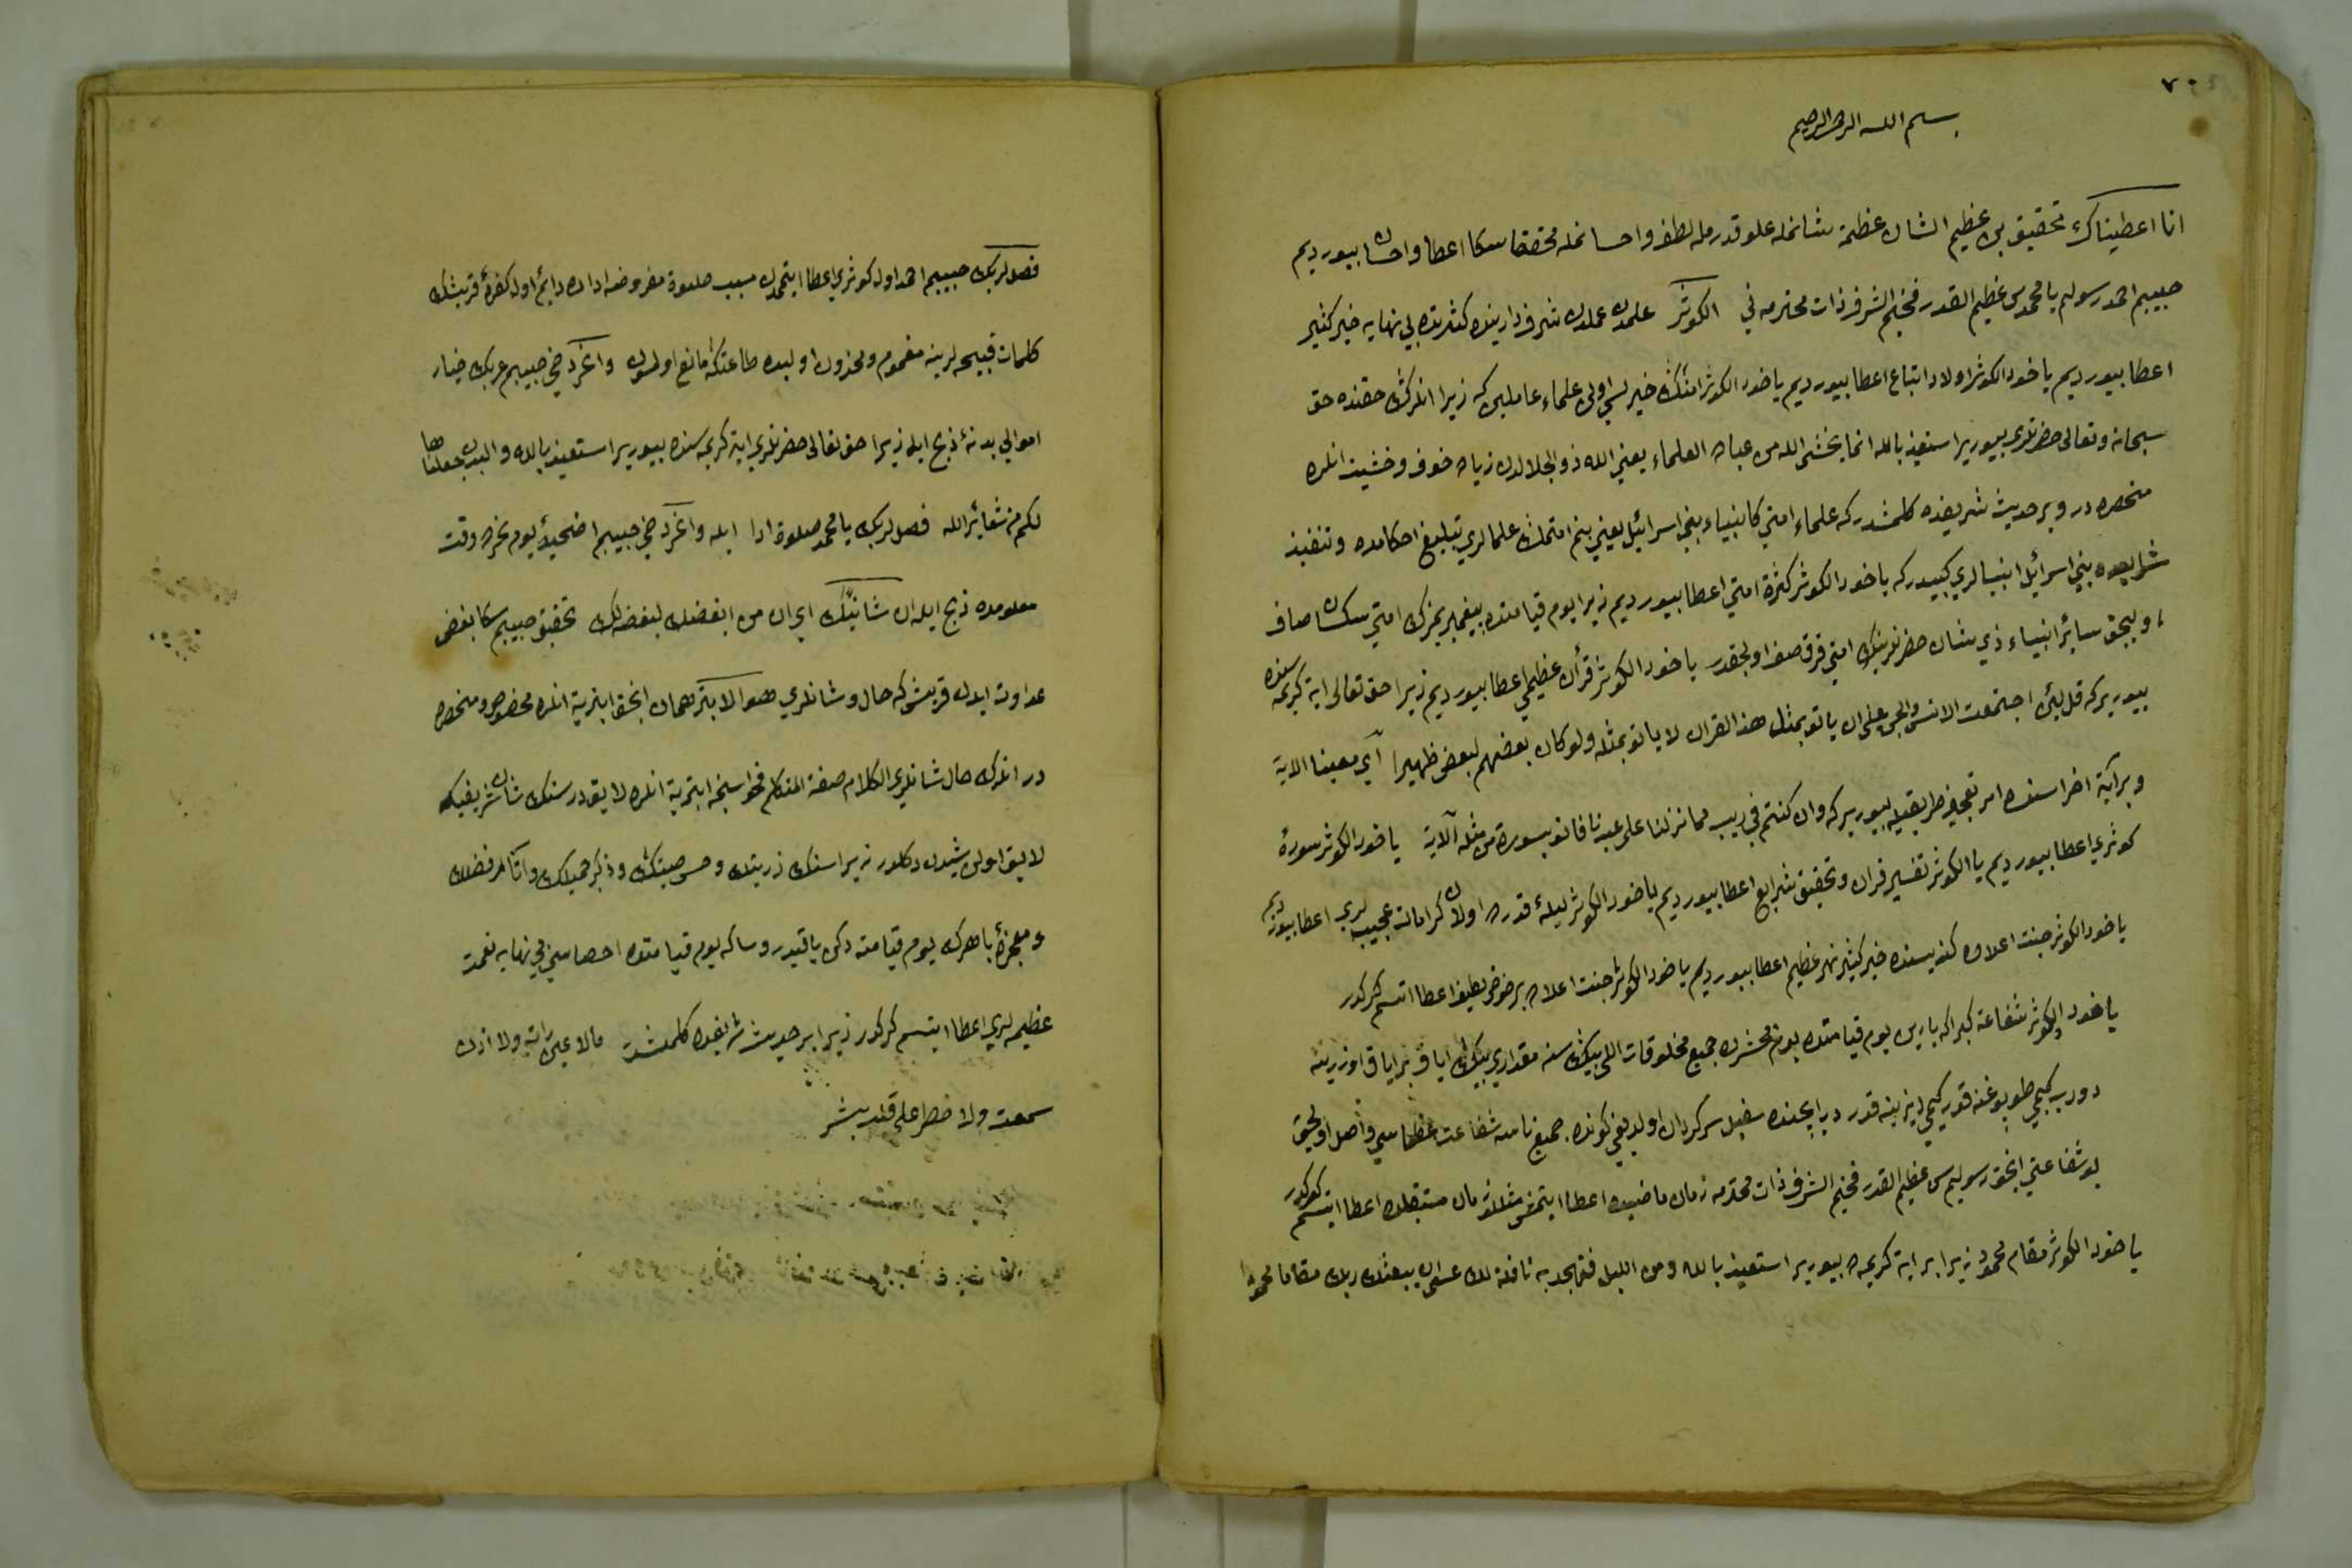 ٧٠
بسم الله الرحمن الرحيم
انا اعطيناك تحقيق بن عظيم الشان عظمة شانمله علو قدرمله لطف واحسانمله محققا سكا اعطا واحسان بيوردم
حبيبم احمد رسولم يا محمد سن عظيم القدر فخيم الشرف ذات محترمه ني الكوثر علمدن عملدن شرف دارينده كثرتده بي نهايه خير كثير
اعطا بيوردم ياخود الكوثر اولاد اتباع اعطا بيوردم ياخود الكوثر امتك خيرليسي اولن علماء عاملين كه زيرا انلرك حقنده حق
سبحانه وتعالى حضرتلري بيوريرا ستعيذ بالله انما يخشى الله من عباده العلماء يعني الله ذو الجلالدن زياده خوف وخشيت انلره
منحصره در وبر حديث شريفده كلمشدر كه علماء امتي كانبياء بني اسرائيل يعني بنم امتمك علمالري تبليغ احكامده وتنفيذ
شرايعده بني اسرائيل انبيالري كبيدر كه ياخود الكوثر كثرة امتي اعطا بيوردم زيرا يوم قيامتده بيغمبرلرك امتي سكسان صاف
اوليجق سائر انبياء ذي شان حضرتلرينك امتي قرق صف اولجقدر ياخود الكوثر قرأن عظيمي اعطا بيوردم زيرا حق تعالى اية كريمه سنده
بيوريركه قل لئن اجتمعت الانس والجن على ان ياتو بمثل هذا القران لا ياتو بمثله ولو كان بعضهم لبعض ظهيرا اي معينا الاية
وبر آية اخراسنده امر تعجيز طريقيله بيوريركه وان كنتم في ريب مما نزلنا على عبدنا فاتو بسورة من مثله الآية ياخود الكوثر سورۀ
كوثري اعطا بيوردم يا الكوثر تفسير قران وتحقيق شرايع اعطا بيوردم ياخود الكوثر ليلۀ قدره اولان كرامات عجيبه لري اعطا بيوردم
ياخود الكوثر جنت اعلاده كنديسنده خير كثير نهر عظيم اعطا بيوردم ياخود الكوثر جنت اعلاده بر حوض لطيف اعطا ايتسم كركدر
ياخود الكوثر شفاعة كبرا كه يارين يوم قيامتده يوم محشرده جميع مخلوقات اللي بيك سنه مقداري بيك اياق بر اياق اوزرينه
دورب كيمي طوبوغنه قدر كيمي ديزينه قدر در ايچنده سفيل سركردان اولديغي كونده. جميع ناسه شفاعت عظماسي واصل اوليجق
بو شفاعتي انجق رسوليم سن عظيم القدر فخيم الشرف ذات محترمه زمان ماضيده اعطا ايتمش مثللو زمان مستقبلده اعطا ايتسم كركدر
ياخود الكوثر مقام محمود زيرا بر اية كريمه ده بيورير استعيذ بالله ومن الليل فتهجد به نافلة لك عسى ان يبعثك ربك مقاما محمودا
فصل لربك حبيبم احمد اول كوثري اعطا ايتمدن سبب صلوة مفروضه اداده دايم اول كفرۀ قريشك
كلمات قبيحه لرينه مغموم ومحزون اوليده طاعتكه مانع اولمسون وانحر دخي حبيبم عربك خيار
اموالي بدنۀ ذبح ايله زيرا حق تعالى حضرتلري اية كريمه سنده بيوريرا ستعيذ بالله والبدن جعلناها
لكم من شعائر الله فصل لربك يا محمد صلوة ادا ايله وانحر دخي حبيبم اضحية يوم نحرده وقت
معلومده ذبح ايله ان شانئك اي ان من ابغضك لبغضه لك تحقيق حبيبم سكا بغض
عداوت ايدن قريش كه حال وشانلري هو الابتر همان انجق ابتريه انلره مخصوص ومنحصره
در انلرك حال شانلري الكلام صفة المتكلم فحواسنجه ابتريه انلره لايقدر سنك شان شريفيكه
لايق اولن شيدن دكلدر زيرا سنك ذريتك وحسن صيتك وذكر جميلك وآثار فضلك
ومعجزۀ باهرك يوم قيامته دكن باقيدر وسكه يوم قيامتده احصاسي بي نهايه نعمت
عظيمه لري اعطا ايتسم كركدر زيرا بر حديث شريفده كلمشدر مالا عين رات ولا اذن
سمعت ولا خطر على قلب بشر